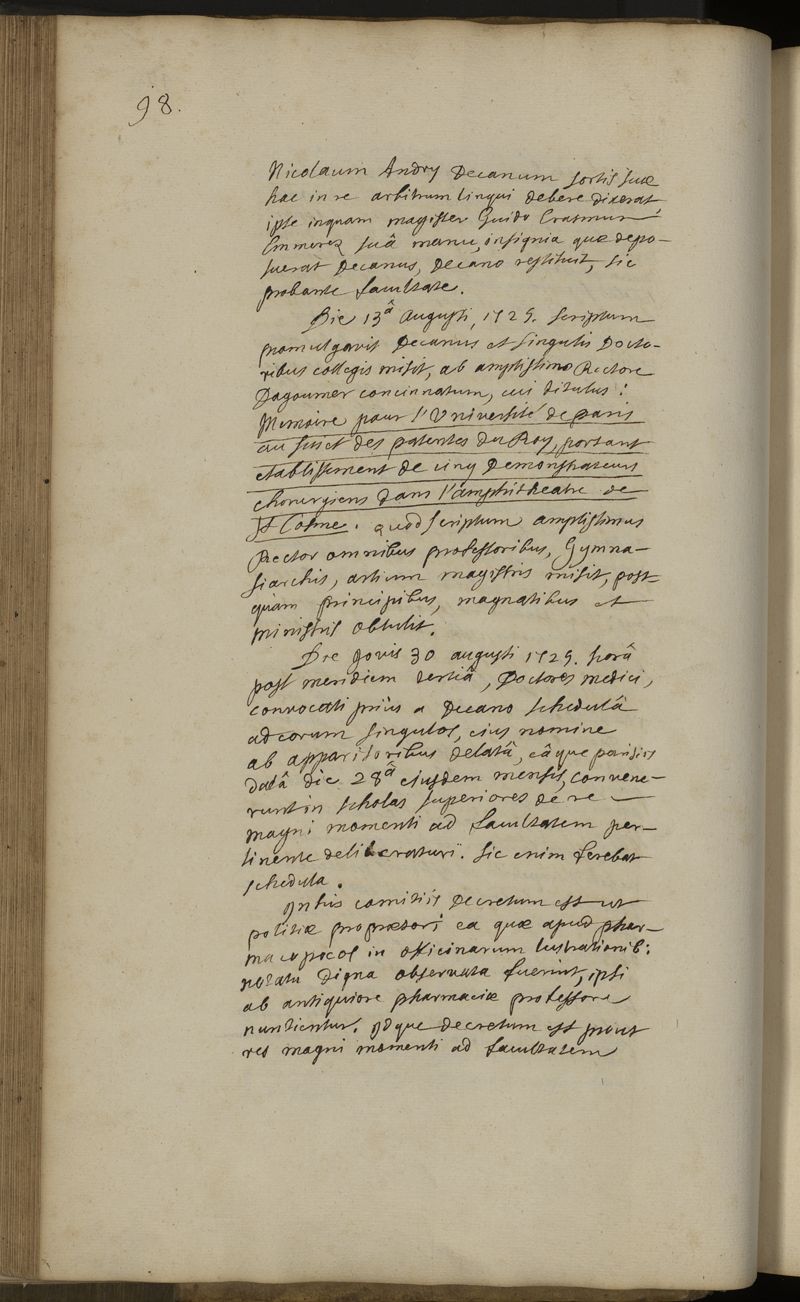 98.
Nicolaum Andry Decanum sortis suæ
hac in re arbitrum linqui debere dixerat
ipse inquam magister Guido Erasmus
Emmerez suâ manu, insignia quæ depo-
suerat Decanus, Decano restituit, sic
probante facultate.
Die 13â Augusti, 1725. scriptum
promulgavit Decanus et singulis Docto-
ribus collegis misit, ab amplissimo Rectore
Dagoumer concinnatum, cui titulus:
Memoire pour l'Université de paris
au sujet des patentes du Roy, portant
etablissement de cinq Demonstrateurs
chirurgiens dans l'amphitheatre de
St Cosme. quod scriptum amplissimus
Rector omnibus professoribus, Gymna-
siarchis, artium magistris misit, post-
quam principibus, magnatibus et
ministris obtulit.
Die Jovis 30 augusti 1725. horâ
post meridiem tertiâ, Doctores medici,
convocati priùs a Decano schedulâ
ad eorum singulos, eius nomine
ab apparitoribus delatâ, eâque parisiis
datâ die 28â eiusdem mensis, convene-
runt in scholas superiores de re
magni momenti ad facultatem per-
tinente deliberaturi. sic enim ferebat
schedula.
In his comitiis Decretum est ut
politiæ proprætori ea quæ apud phar-
macopocos in officinarum lustrationib:
notatu digna observata fuerint, ipsi
ab antiquiore pharmaciæ professore
nuntientur. Idque decretum est prout
res magni momenti ad facultatem